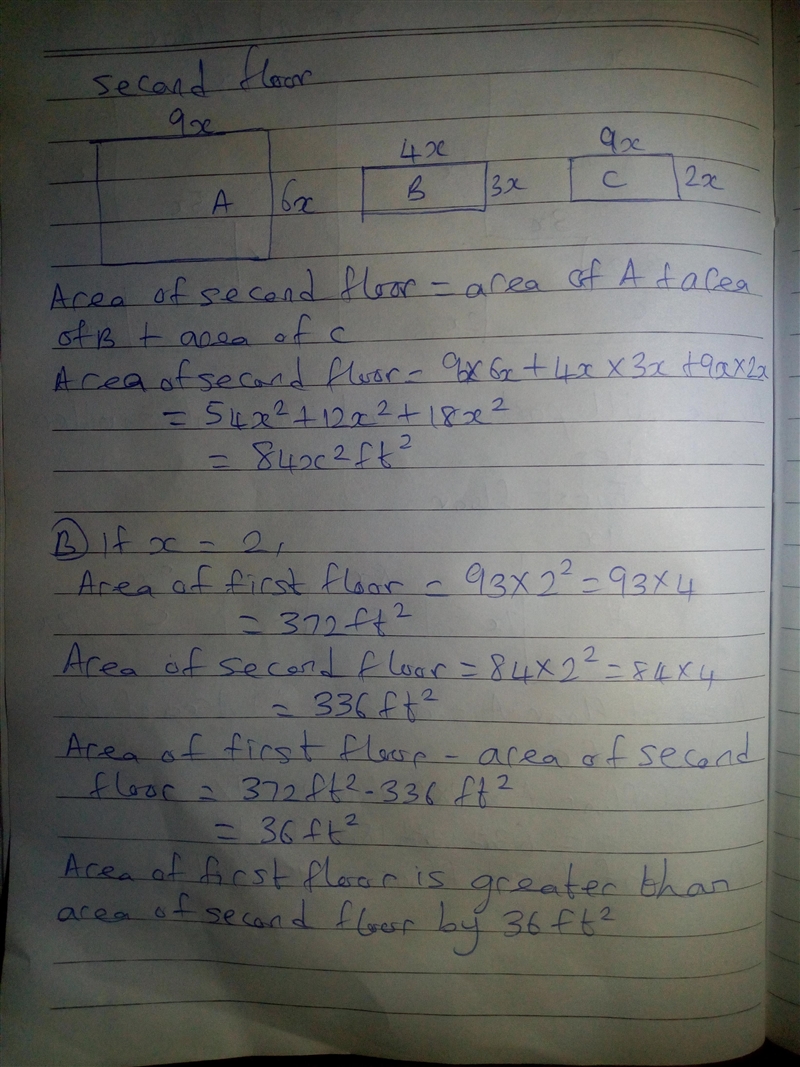 second floor
9x
4x
9x
A
6x
B
3x
C
2x
Area of second floor = area of A + area
of B + area of C
Area of second floor = 9x × 6x + 4x × 3x + 9x × 2x
= 54x² + 12x² + 18x²
= 84x² ft²
B) If x = 2,
Area of first floor = 93 × 2² = 93 × 4
= 372 ft²
Area of second floor = 84 × 2² = 84 × 4
= 336 ft²
Area of first floor - area of second
floor = 372 ft² - 336 ft²
= 36 ft²
Area of first floor is greater than
area of second floor by 36 ft²